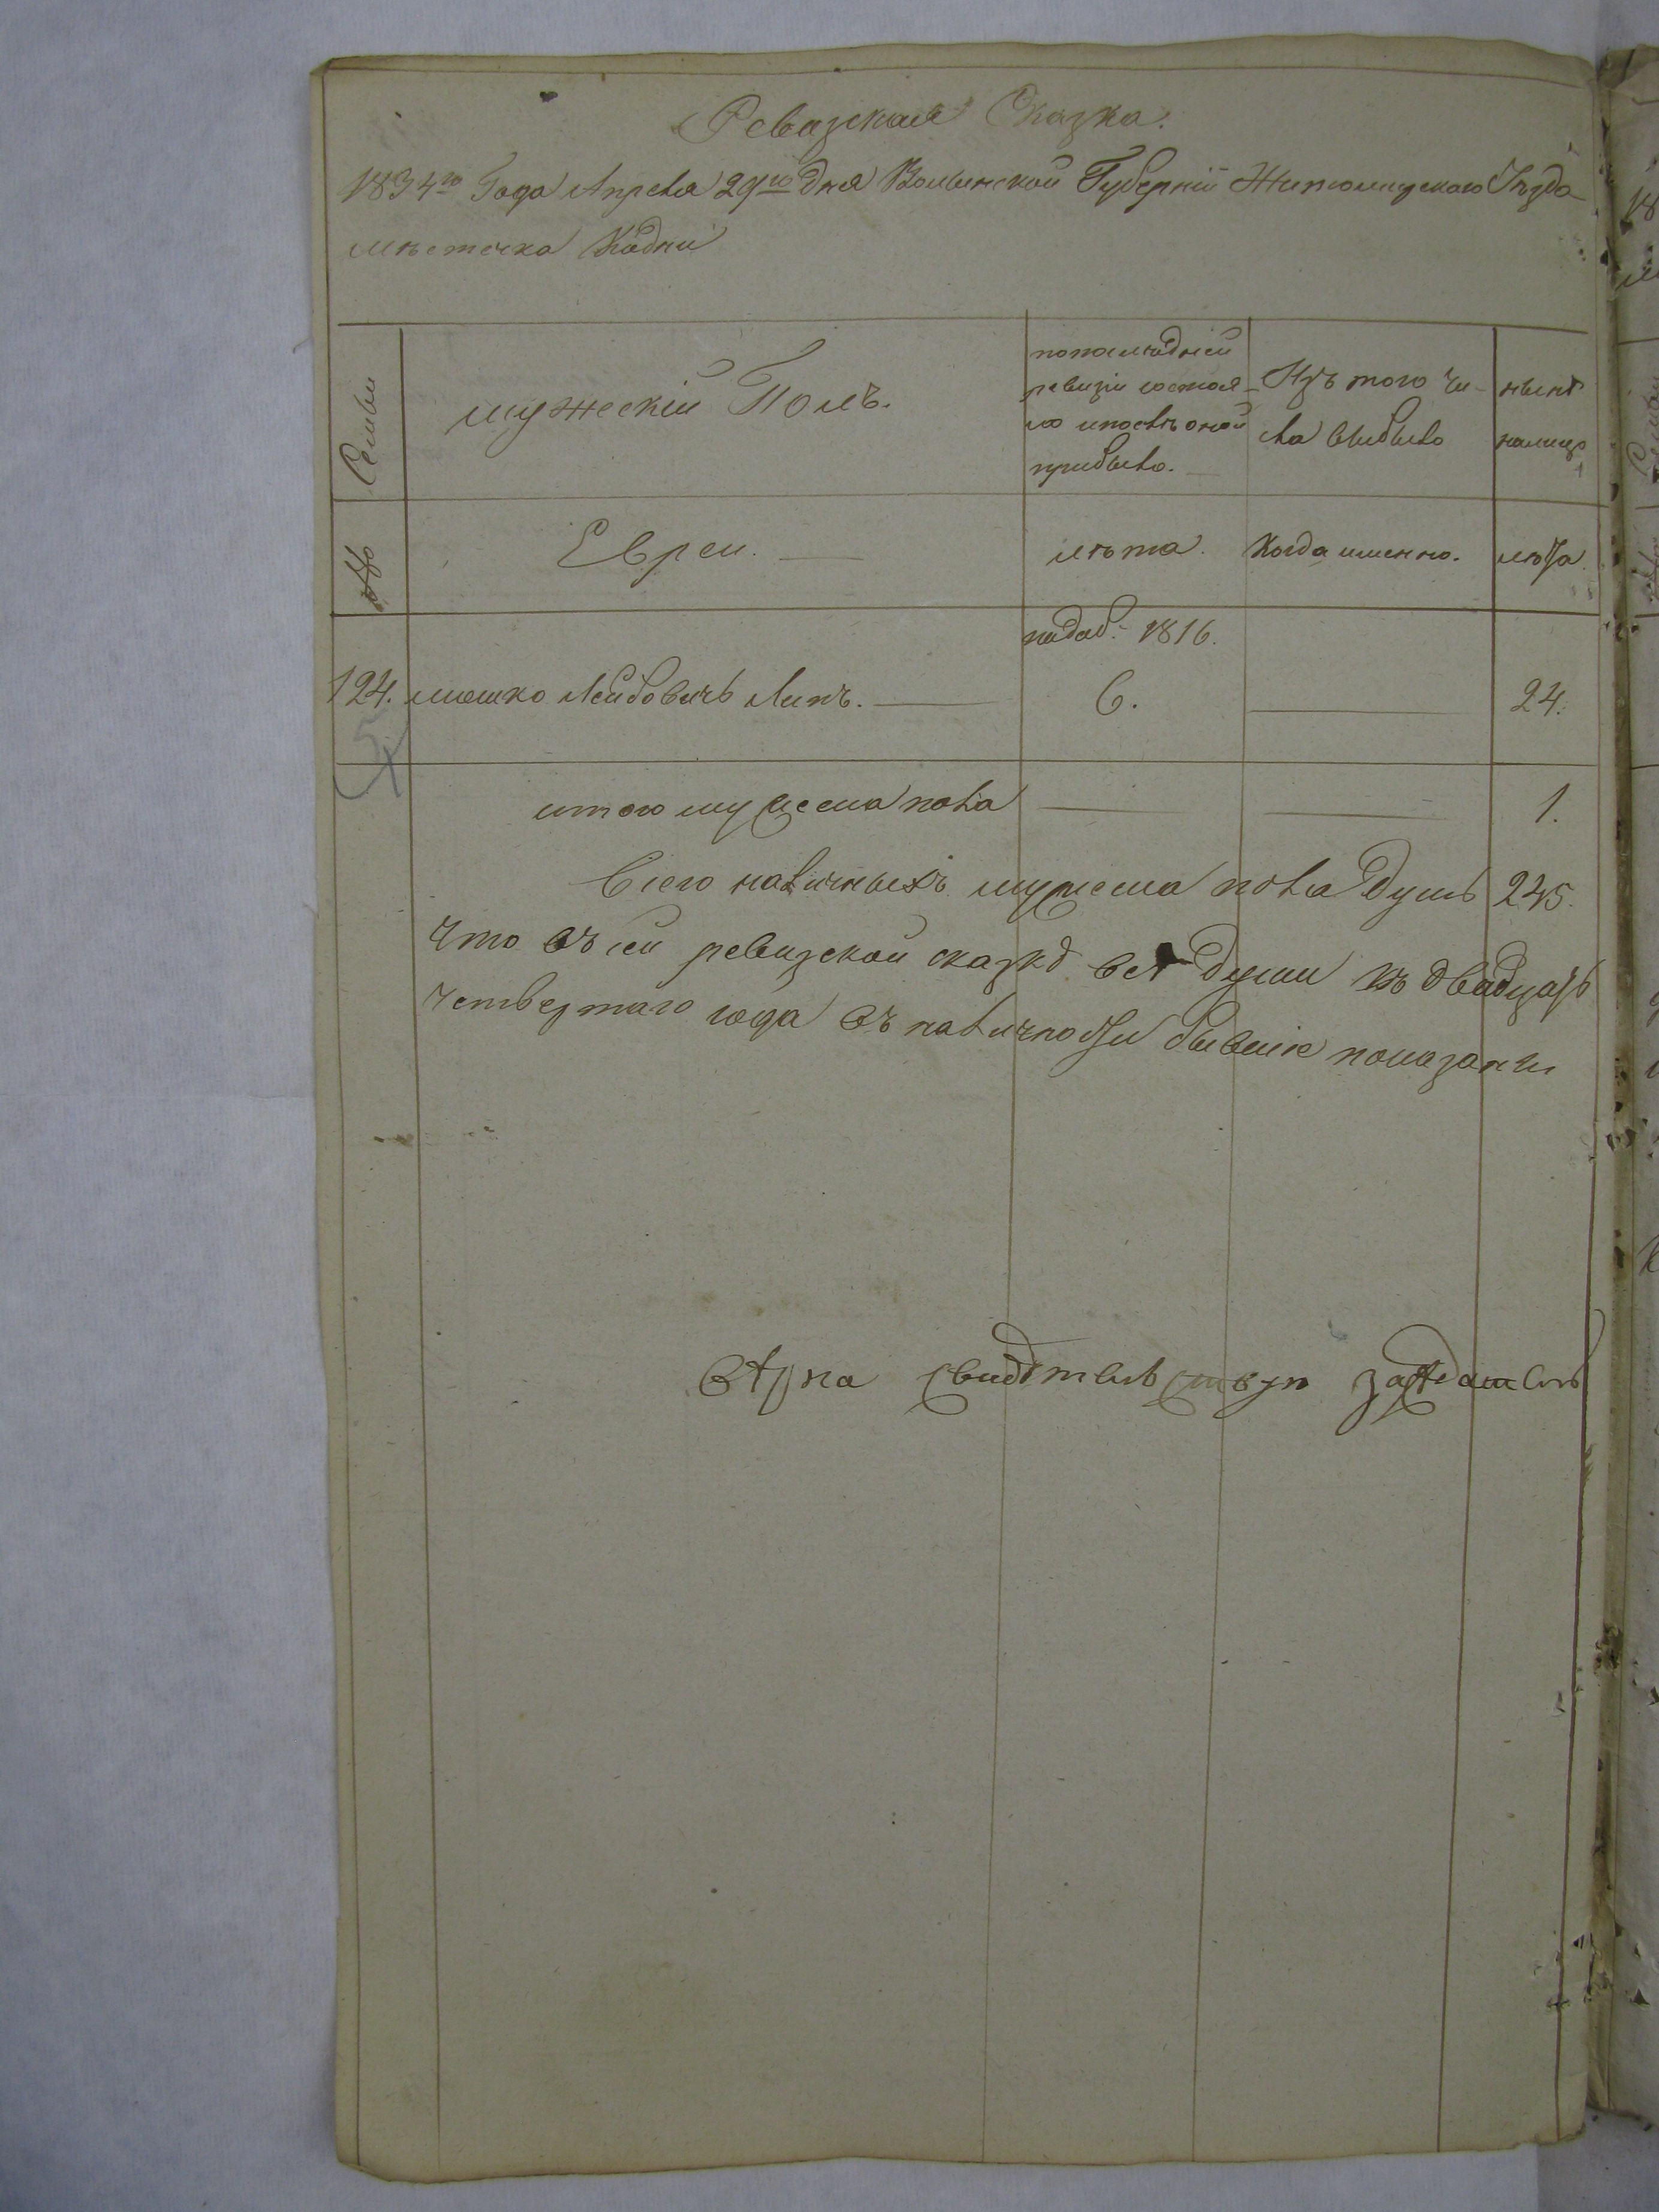 Ревизская Сказка.
1834го Года Апреля 29го дня Волынской Губернiи Житомирскаго Уѣзда
мѣстечка Кодни
Семьи
мужескiй Полъ.
попослѣдней ревизiи состояло ипослѣ оной прибыло.
Изъ того числа выбыло
нынѣ налицо
№
Евреи.
лѣта.
Когда именно.
лѣта.
подаб. 1816.
124. мошко Лейбовичъ Липъ.
6.
24.
5
итого мужеска пола
1.
Всего наличныхъ мужеска пола Душъ 245.
что въ сей ревизской сказкѣ всѣ Души къ двадцать
четвертаго года въ наличности бывшiе показаны